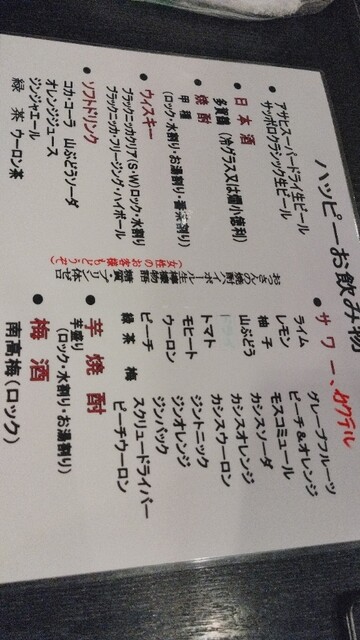 ハッピーお飲み物
アサヒスーパードライ生ビール
サッポロクラシック生ビール
● 日本酒
多賀鶴 (冷グラス又は燗小徳利)
● 焼酎
甲種
(ロック・水割り・お湯割り・番茶割り)
● ウィスキー
ブラックニッカクリア(S・W)ロック・水割り
ブラックニッカ・フリージング・ハイボール
● ソフトドリンク
コカ・コーラ 山ぶどうソーダ
オレンジジュース
ジンジャエール
緑茶 ウーロン茶
おっさんの焼酎ハイボール
糖質・プリン体ゼロ
(女性のお客様もどうぞ)
● サワー、カクテル
ライム
レモン
柚子
山ぶどう
トマト
モヒート
ウーロン
ピーチ
緑茶 梅
グレープフルーツ
ピーチ&オレンジ
モスコミュール
カシスソーダ
カシスオレンジ
カシスウーロン
ジントニック
ジンオレンジ
ジンバック
スクリュードライバー
ピーチウーロン
● 芋焼酎
芋盛り
(ロック・水割り・お湯割り)
● 梅酒
南高梅(ロック)